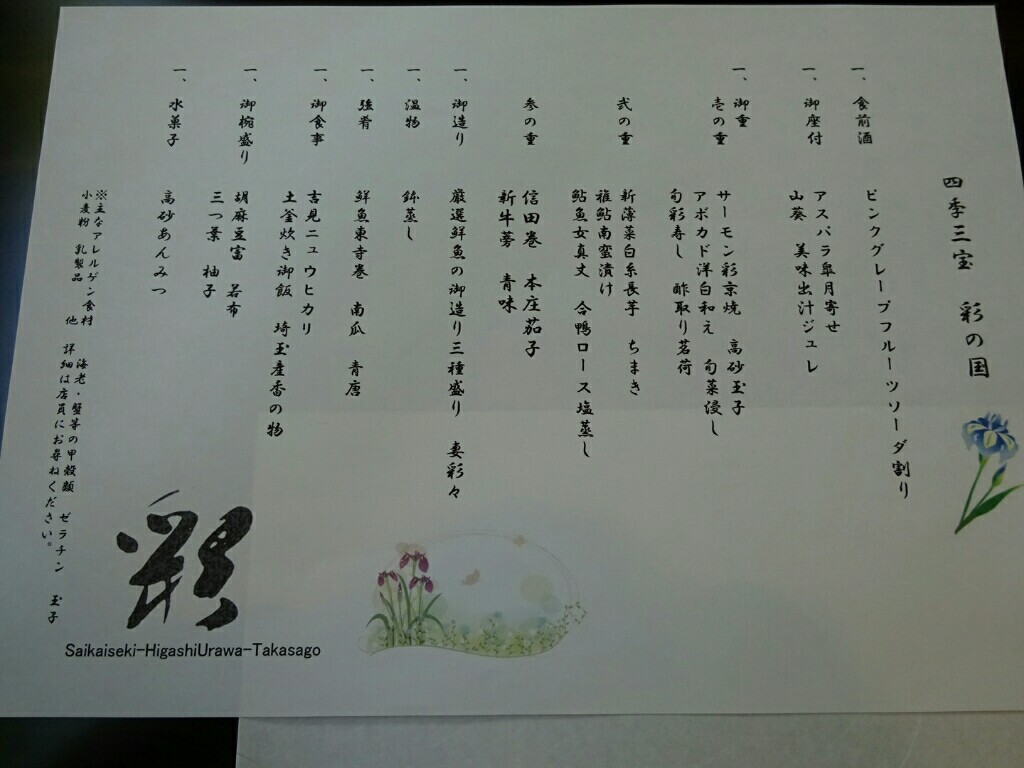 四季三宝 彩の国
一、食前酒 ピンクグレープフルーツソーダ割り
一、御座付 アスパラ皐月寄せ
山葵 美味出汁ジュレ
一、御重
壱の重 サーモン彩京焼 高砂玉子
アボカド洋白和え 旬菜浸し
旬彩寿し 酢取り茗荷
弐の重 新蓴菜白糸長芋 ちまき
稚鮎南蛮漬け
鮎魚女真丈 合鴨ロース塩蒸し
参の重 信田巻 本庄茄子
新牛蒡 青味
一、御造り 厳選鮮魚の御造り三種盛り 妻彩々
一、温物 鉢蒸し
一、強肴 鮮魚東寺巻 南瓜 青唐
一、御食事 吉見ニュウヒカリ
土釜炊き御飯 埼玉産香の物
一、御椀盛り 胡麻豆富 若布
三つ葉 柚子
一、水菓子 高砂あんみつ
※主なアレルゲン食材 海老・蟹等の甲殻類 ゼラチン 玉子
小麦粉 乳製品 他 詳細は店員にお尋ねください。
彩
Saikaiseki-HigashiUrawa-Takasago